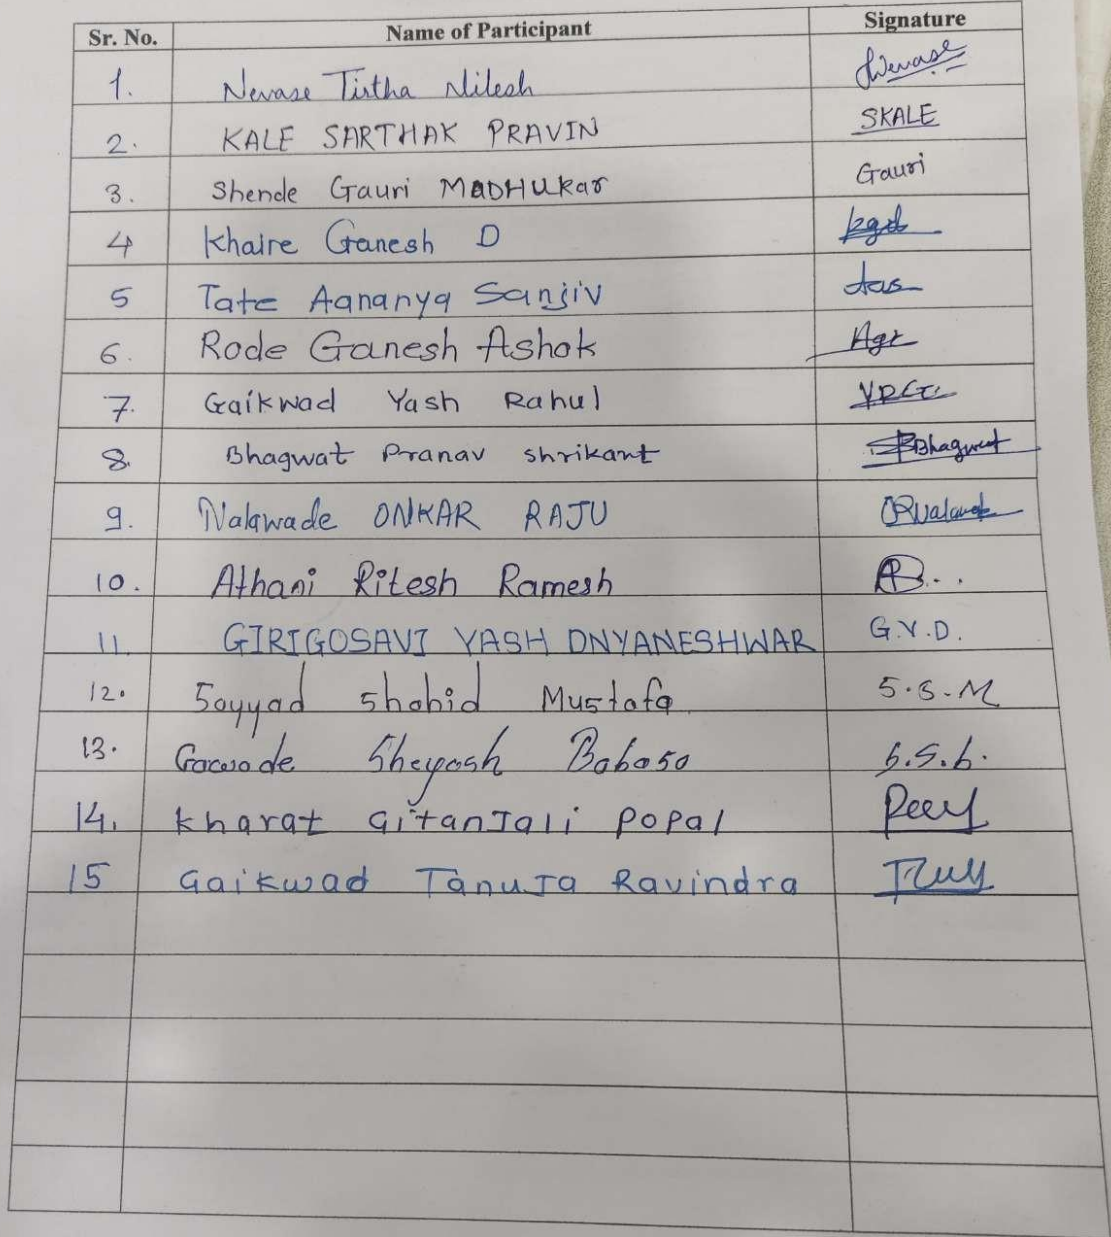 Sr. No. Name of Participant Signature
1. Nevase Tirtha Nilesh Nevase
2. KALE SARTHAK PRAVIN SKALE
3. Shende Gauri MADHUkar Gauri
4 Khaire Ganesh D kgd
5 Tate Aananya Sanjiv tas
6. Rode Ganesh Ashok
7. Gaikwad Yash Rahul YRG
8. Bhagwat Pranav shrikant Bhagwat
9. Nalawade ONKAR RAJU ORNalawade
10. Athani Ritesh Ramesh
11. GIRIGOSAVI YASH DNYANESHWAR G.Y.D.
12. Sayyad Shahid Mustafa S.S.M
13. Gawade Sheyash Babaso S.S.b.
14. kharat GitanJali Popal
15 Gaikwad TanuJa Ravindra